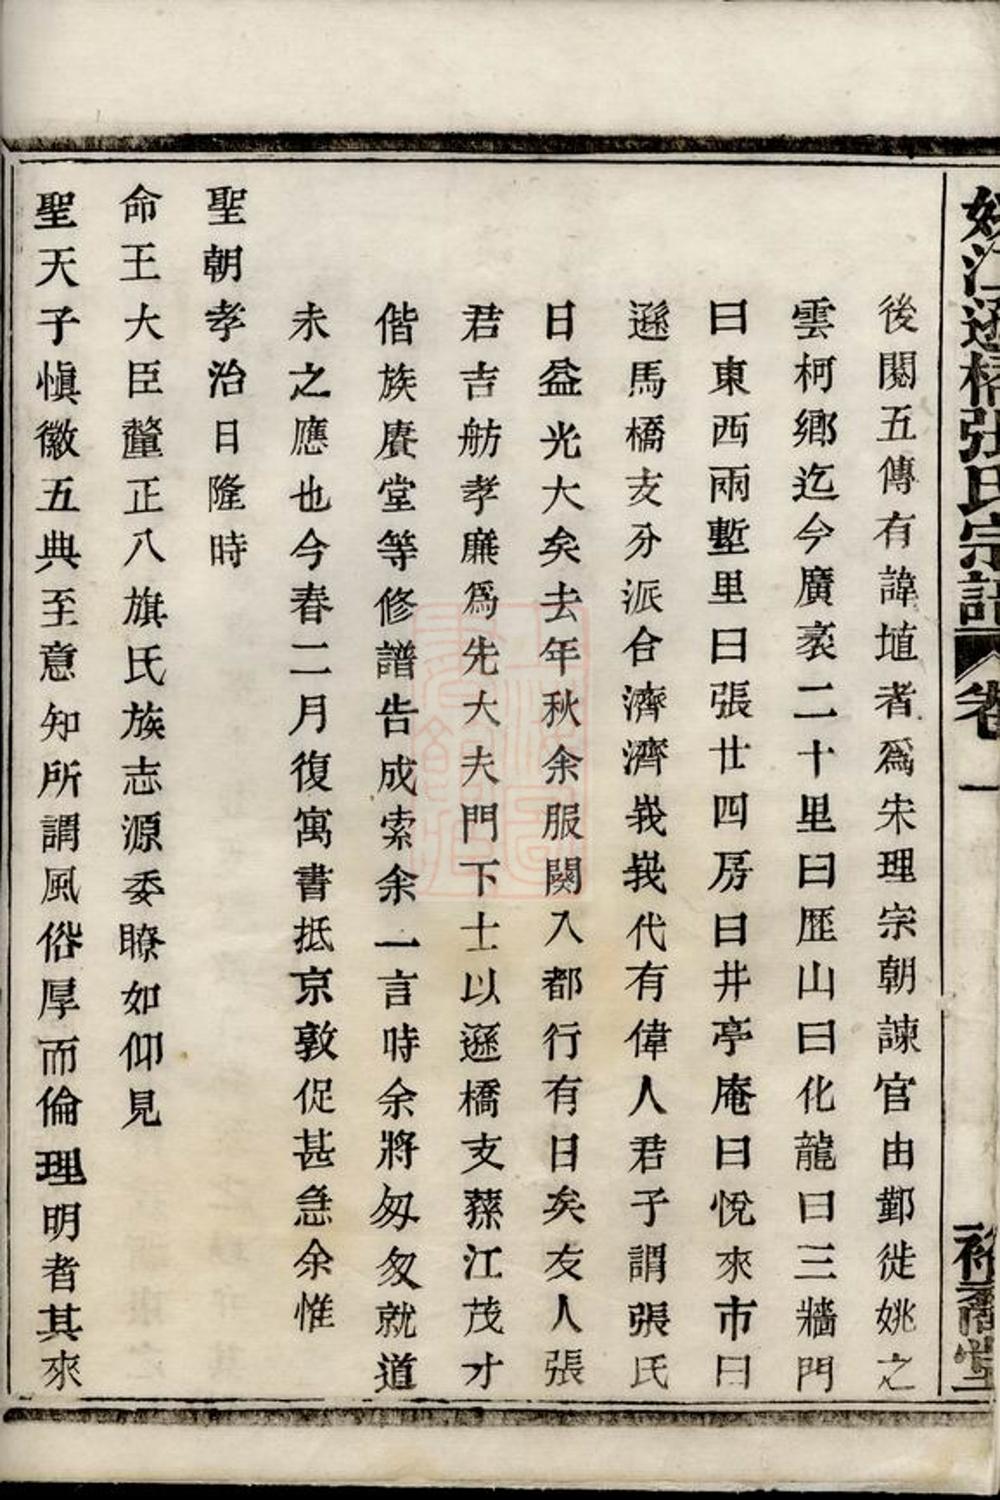 姚江遜橋張氏宗譜 卷一 裕齋堂
後閱五傳有諱埴者爲宋理宗朝諫官由鄞徙姚之
雲柯鄉迄今廣袤二十里曰歷山曰化龍曰三牆門
曰東西兩塹里曰張廿四房曰井亭庵曰悅來市曰
遜馬橋支分派合濟濟峩峩代有偉人君子謂張氏
日益光大矣去年秋余服闋入都行有日矣友人張
君吉舫孝廉爲先大夫門下士以遜橋支蓀江茂才
偕族賡堂等修譜告成索余一言時余將匆匆就道
未之應也今春二月復寓書抵京敦促甚急余惟
聖朝孝治日隆時
命王大臣釐正八旗氏族志源委瞭如仰見
聖天子愼徽五典至意知所謂風俗厚而倫理明者其來